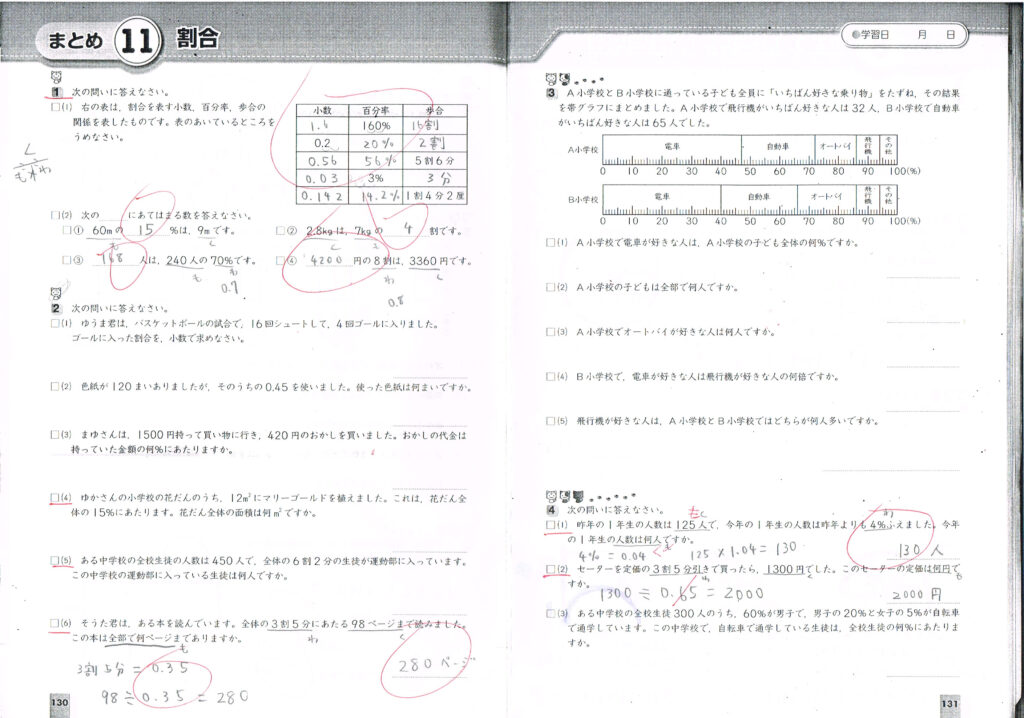 まとめ 11 割合
1 次の問いに答えなさい。
□(1) 右の表は、割合を表す小数、百分率、歩合の
関係を表したものです。表のあいているところを
うめなさい。
小数 百分率 歩合
1.6 160% 16割
0.2 20% 2割
0.56 56% 5割6分
0.03 3% 3分
0.142 14.2% 1割4分2厘
□(2) 次の にあてはまる数を答えなさい。
□① 60mの 15 %は、9mです。
□② 2.8kgは、7kgの 4 割です。
□③ 168 人は、240人の70%です。
0.7
□④ 4200 円の8割は、3360円です。
0.8
2 次の問いに答えなさい。
□(1) ゆうま君は、バスケットボールの試合で、16回シュートして、4回ゴールに入りました。
ゴールに入った割合を、小数で求めなさい。
□(2) 色紙が120まいありましたが、そのうちの0.45を使いました。使った色紙は何まいですか。
□(3) まゆさんは、1500円持って買い物に行き、420円のおかしを買いました。おかしの代金は
持っていた金額の何%にあたりますか。
□(4) ゆかさんの小学校の花だんのうち、12m²にマリーゴールドを植えました。これは、花だん全
体の15%にあたります。花だん全体の面積は何m²ですか。
□(5) ある中学校の全校生徒の人数は450人で、全体の6割2分の生徒が運動部に入っています。
この中学校の運動部に入っている生徒は何人ですか。
□(6) そうた君は、ある本を読んでいます。全体の3割5分にあたる98ページまで読みました。
この本は全部で何ページまでありますか。
も わ く
3割5分 = 0.35
98 ÷ 0.35 = 280
280ページ
130
●学習日 月 日
3 A小学校とB小学校に通っている子ども全員に「いちばん好きな乗り物」をたずね、その結果
を帯グラフにまとめました。A小学校で飛行機がいちばん好きな人は32人、B小学校で自動車
がいちばん好きな人は65人でした。
A小学校 電車 自動車 オートバイ 飛行機 その他
0 10 20 30 40 50 60 70 80 90 100(%)
B小学校 電車 自動車 オートバイ 飛行機 その他
0 10 20 30 40 50 60 70 80 90 100(%)
□(1) A小学校で電車が好きな人は、A小学校の子ども全体の何%ですか。
□(2) A小学校の子どもは全部で何人ですか。
□(3) A小学校でオートバイが好きな人は何人ですか。
□(4) B小学校で、電車が好きな人は飛行機が好きな人の何倍ですか。
□(5) 飛行機が好きな人は、A小学校とB小学校ではどちらが何人多いですか。
4 次の問いに答えなさい。
□(1) 昨年の1年生の人数は125人で、今年の1年生の人数は昨年よりも4%ふえました。今年
の1年生の人数は何人ですか。
4% = 0.04 125 × 1.04 = 130
130人
□(2) セーターを定価の3割5分引きで買ったら、1300円でした。このセーターの定価は何円で
すか。
1300 ÷ 0.65 = 2000
2000円
□(3) ある中学校の全校生徒300人のうち、60%が男子で、男子の20%と女子の5%が自転車
で通学しています。この中学校で、自転車で通学している生徒は、全校生徒の何%にあたりま
すか。
131